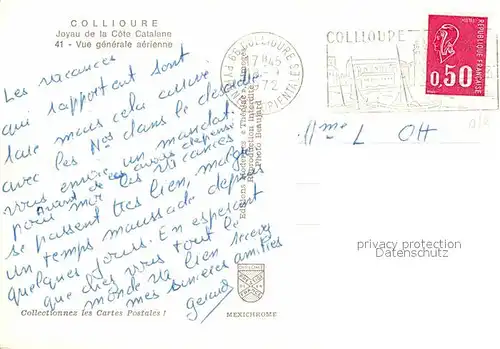 COLLIOURE
Joyau de la Côte Catalane
41 - Vue générale aérienne
Les vacances
qui rapportent sont
rare mais cela arrive
avec les Nos dans le
vous envoie un mandat.
avant de les avoir dépensé
pour moi les vacances
se passent très bien, malgré
un temps maussade depuis
quelques jours. En espérant
que chez vous tout le
monde va bien recevez
mes sincères amitiés
Gerard
Collectionnez les Cartes Postales !
MEXICHROME
Reproduction interdite
66 COLLIOURE
PYRENEES ORIENTALES
17H45
1972
COLLIOURE
REPUBLIQUE FRANÇAISE
0,50
privacy protection
Datenschutz